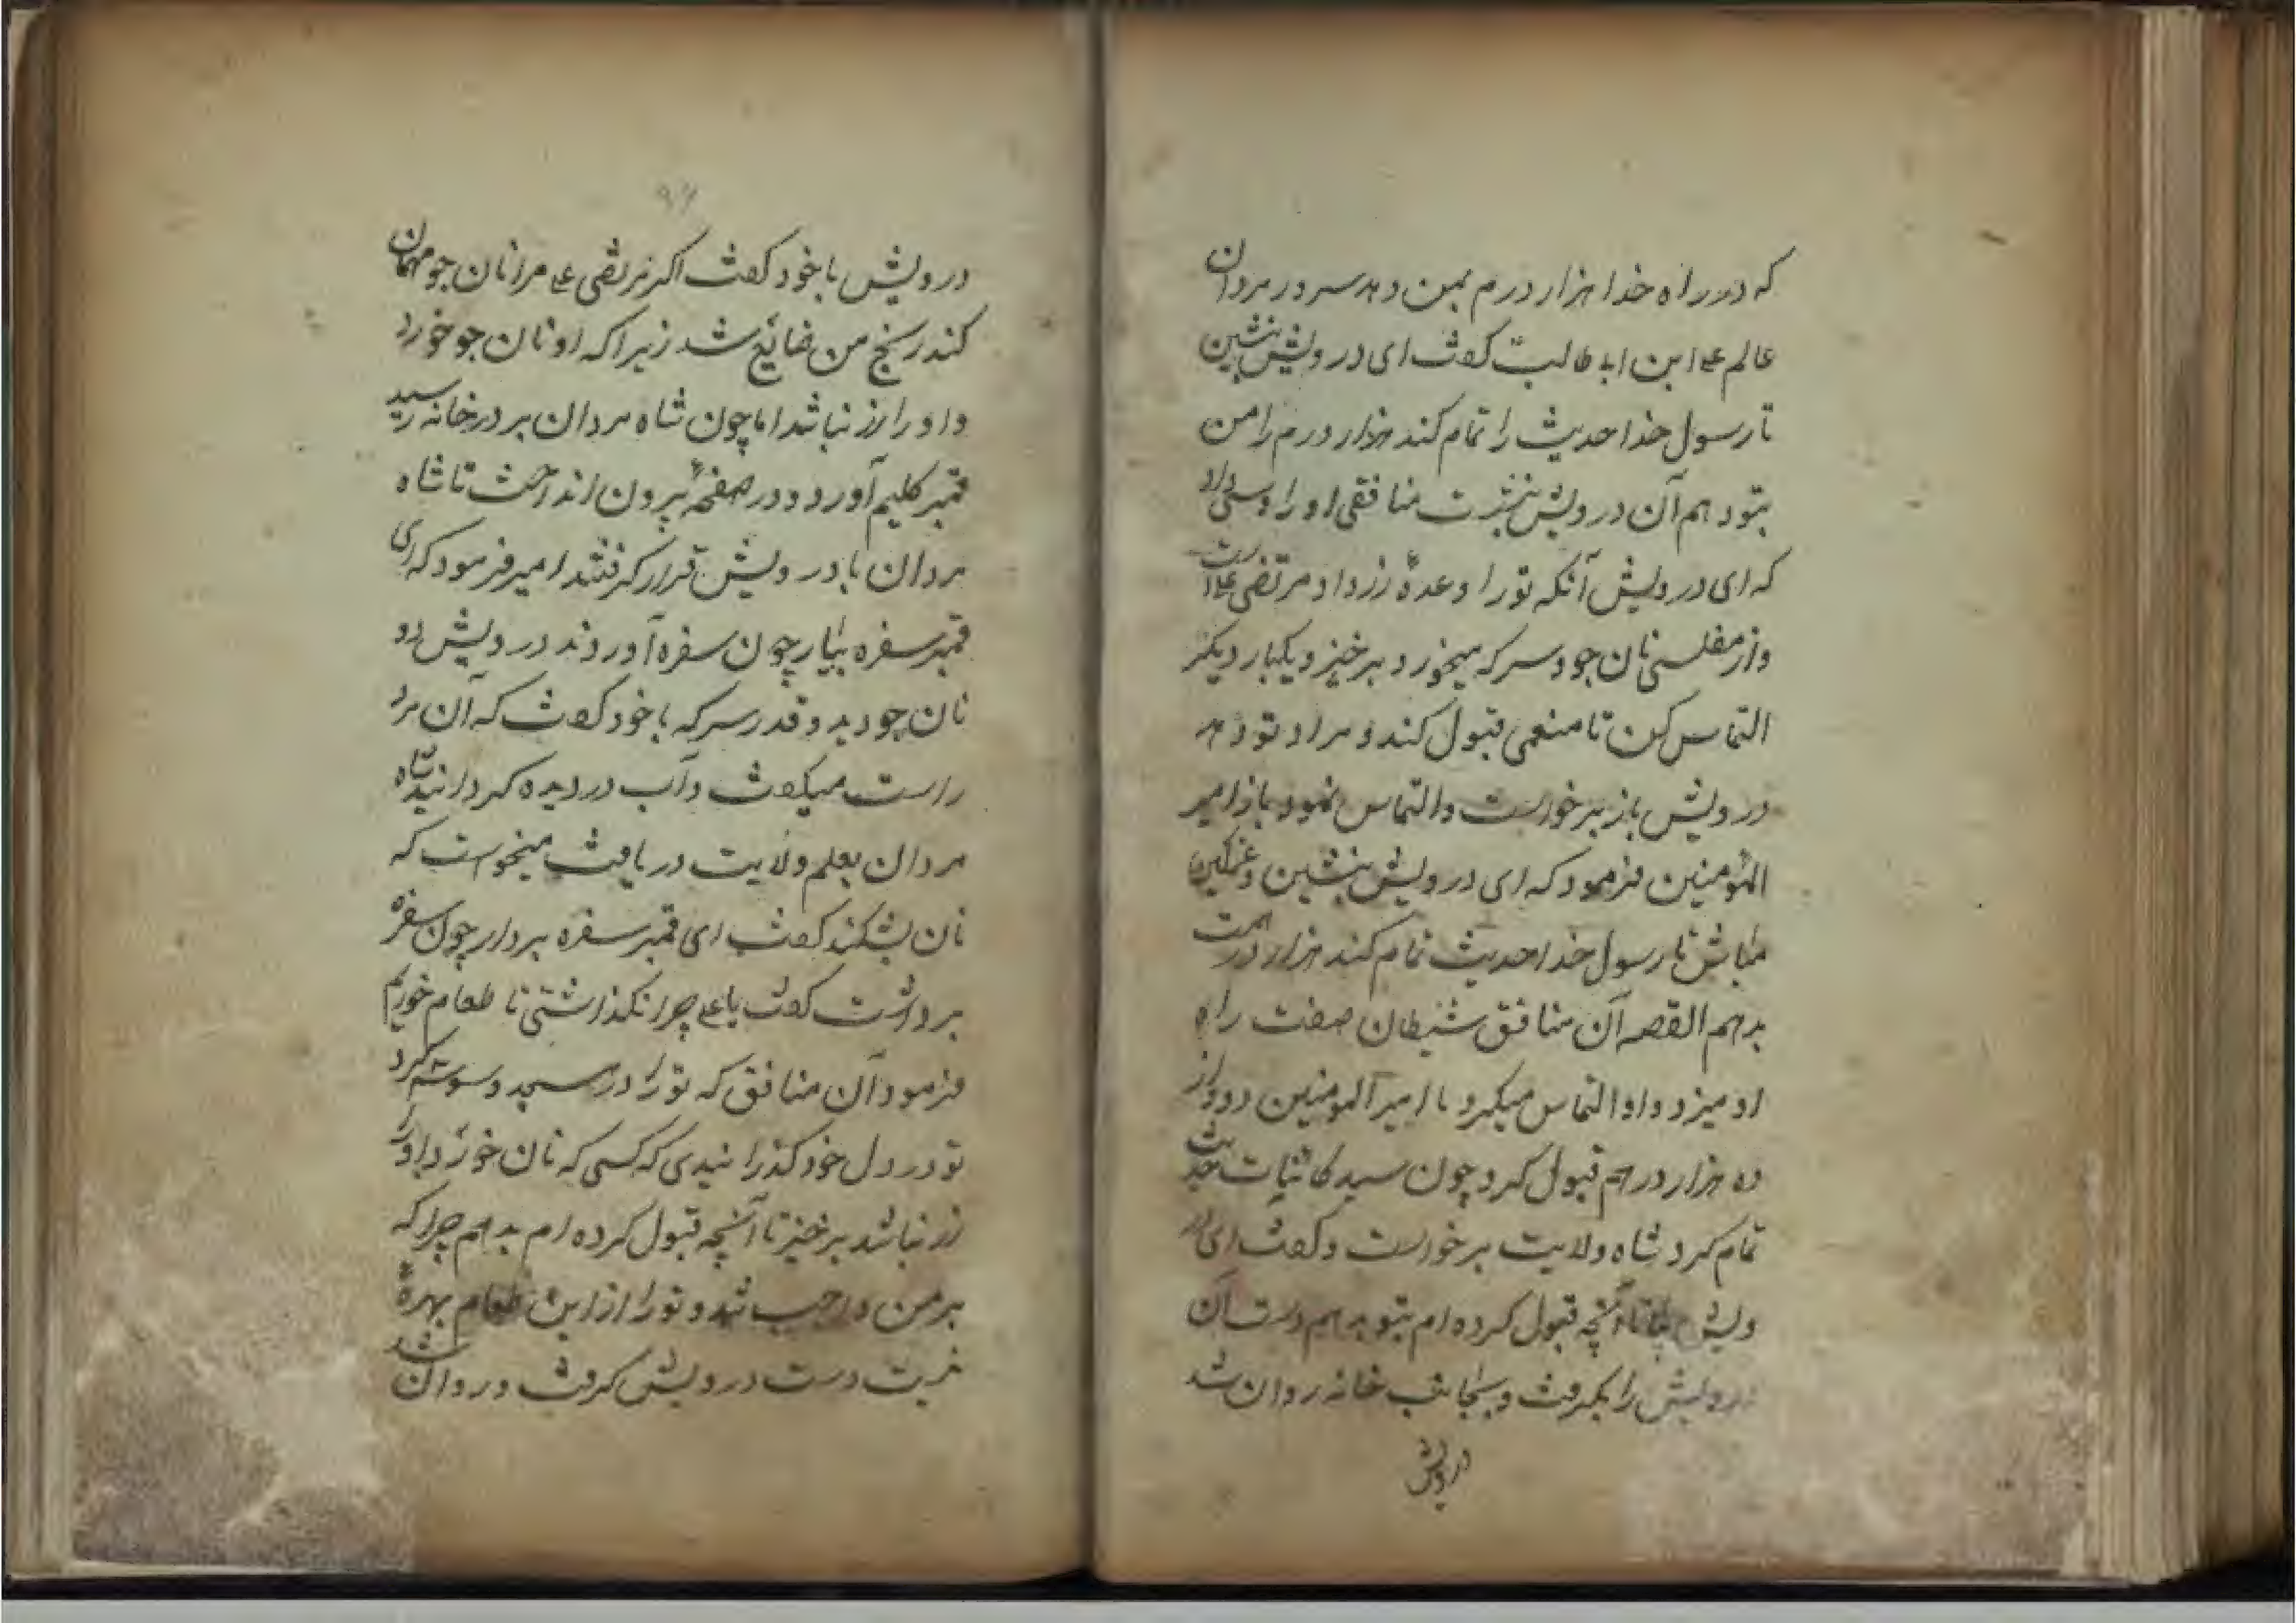 که در راه خدا هزار درم بمن دهد سرور مردان
عالم علی ابن ابی طالب کفت ای درویش بنشین
تا رسول خدا حدیث را تمام کند هزار درم را من
بتو دهم آن درویش بنشست منافقی او را وسوسی داد
که ای درویش آنکه تو را وعدهٔ زر داد مرتضی علی است
و از مفلسی نان جو و سرکه میخورد برخیز و یکبار دیکر
التماس کن تا منعمی قبول کند و مراد تو دهد
درویش باز برخواست و التماس نمود باز امیر
المؤمنین فرمود که ای درویش بنشین و غمکین
مباش تا رسول خدا حدیث تمام کند هزار درمت
بدهم القصه آن منافق شیطان صفت راه
او میزد و او التماس میکرد تا امیر المومنین دوواز
ده هزار درهم قبول کرد چون سید کاینات حدیث
تمام کرد شاه ولایت برخواست و کفت ای در
ویش بیا تا آنچه قبول کرده ام بتو بدهم دست آن
درویش را بکرفت و بجانب خانه روان شد
درویش
درویش با خود کفت اکر مرتضی علی مرا نان جو مهمان
کند رنج من ضایع شد زیرا که او نان جو خورد
و او را زر نباشد اما چون شاه مردان بر در خانه رسید
قمبر کلیم آورد و در صفحهٔ بیرون انداخت تا شاه
مردان با درویش قرار کرفتند امیر فرمود که ای
قمبر سفره بیار چون سفره آوردند درویش دو
نان جو دید و قدر سرکه با خود کفت که آن مرد
راست میکفت و آب در دیده کردانید شاه
مردان بعلم ولایت دریافت میخواست که
نان بشکند کفت ای قمبر سفره بردار چون سفره
برداشت کفت یا علی چرا نکذاشتی تا طعام خوریم
فرمود آن منافق که تو را در مسجد وسوسه کرد
تو در دل خود کذرانیدی که کسی که نان خورد و او را
زر نباشد برخیز تا آنچه قبول کرده ام بدهم چرا که
بر من واجب شد و تو را از این طعام بهرهٔ
نیست دست درویش کرفت و روان شد